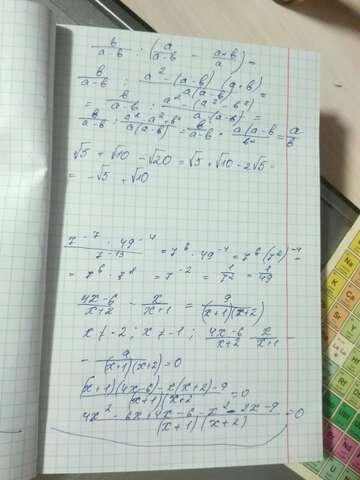 b/(a-b) : (a/(a-b) - (a+b)/a) =
b/(a-b) : (a² - (a-b)(a+b))/(a(a-b)) =
= b/(a-b) : (a² - (a² - b²))/(a(a-b)) =
b/(a-b) : (a² - a² + b²)/(a(a-b)) = b/(a-b) · a(a-b)/b² = a/b
√5 + √10 - √20 = √5 + √10 - 2√5 =
= -√5 + √10
(7⁻⁷ · 49⁻⁴)/7⁻¹³ = 7⁶ · 49⁻⁴ = 7⁶ (7²)⁻⁴ =
= 7⁶ · 7⁻⁸ = 7⁻² = 1/7² = 1/49
(4x-6)/(x+2) - x/(x+1) = 9/((x+1)(x+2))
x ≠ -2; x ≠ -1; (4x-6)/(x+2) - x/(x+1) -
- 9/((x+1)(x+2)) = 0
((x+1)(4x-6) - x(x+2) - 9)/((x+1)(x+2)) = 0
(4x² - 6x + 4x - 6 - x² - 2x - 9)/((x+1)(x+2)) = 0